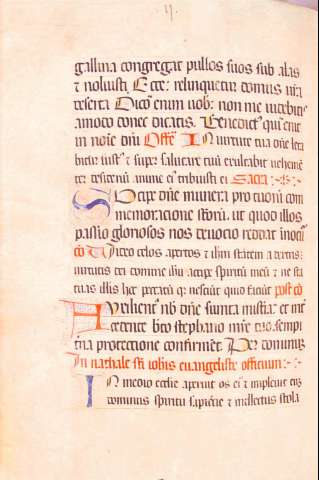 gallina congregat pullos suos sub alas
⁊ noluisti Ecce relinquetur domus ura
deserta Dico enim uob non me uidebitis
amodo donec dicatis Benedict' qui uenit
in noie dni Offe In uirtute tua dne leta
bitur iust' ⁊ super salutare tuũ exultabit uehemẽ
ter desideriũ anime ei' tribuisti ei Sacra
Suscipe dñe munera pro tuorũ com
memoracione sctorũ ut quod illos
passio gloriosos nos deuocio reddat inocuos
cõ Uideo celos apertos ⁊ ihm stantem a dextris
uirtutis dei domine ihu accipe spiritũ meũ ⁊ ne sta
tuas illis hec peccatũ q' nesciũt quid faciũt post cõ
Auxilient' nob dñe sumta misteria ⁊ inter
cedente bto stephano mre tuo sempi
tna proteccione confirmet Per dominum
In natale sti iohis euangeliste officium
In medio ecclie aperuit os ei' ⁊ impleuit eũ
dominus spiritu sapiencie ⁊ intellectus stola